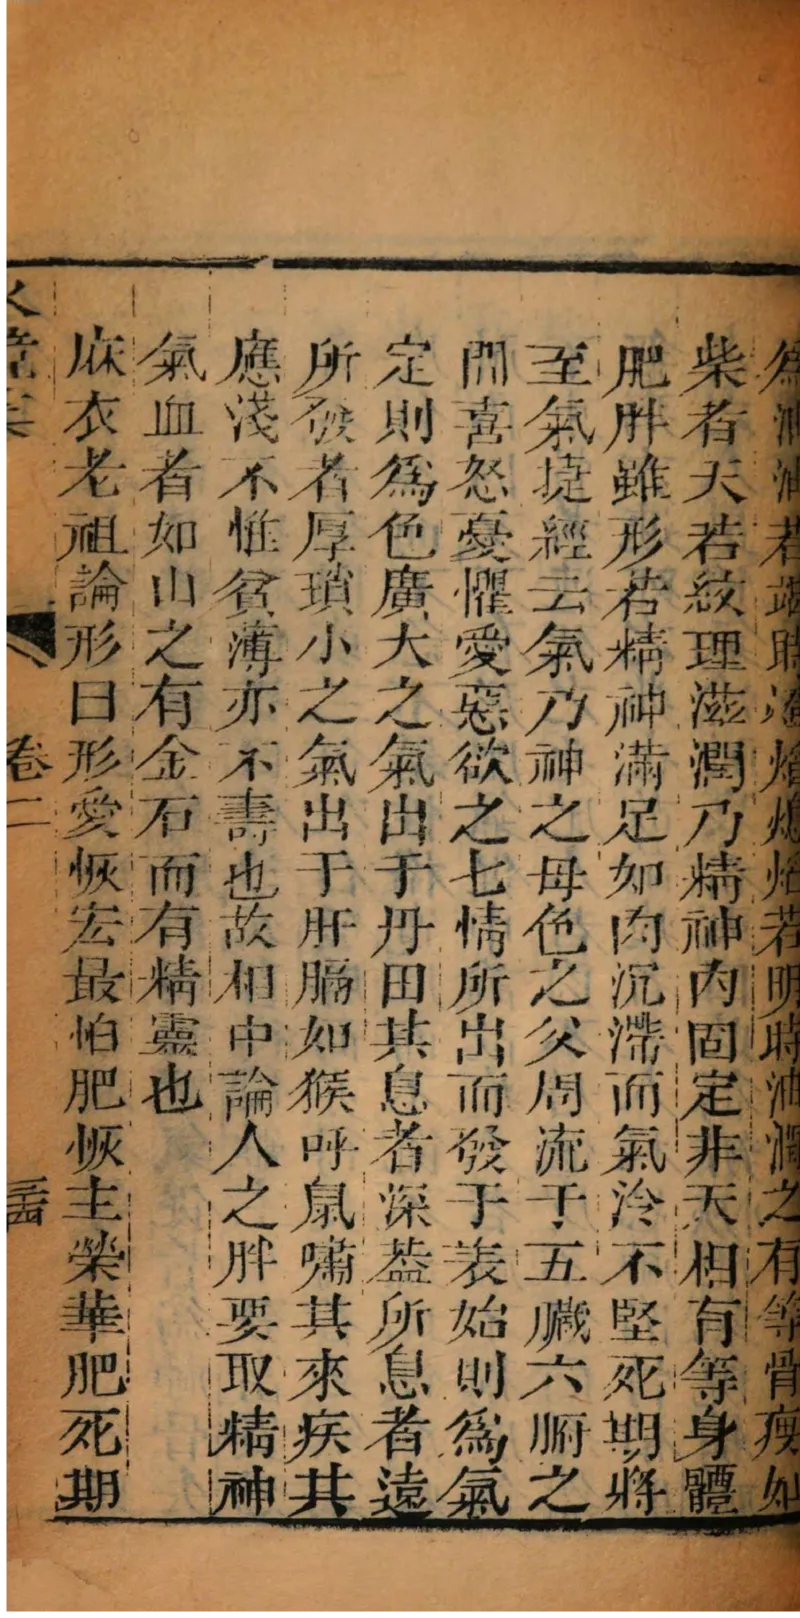 為油油若竭時焰熄焰若明時油潤之有等骨瘦如
柴者天若紋理滋潤乃精神內固定非夭相有等身體
肥胖雖形若精神滿足如肉沉滯而氣冷不堅死期將
至氣揵經云氣乃神之母色之父周流于五臟六腑之
間喜怒憂懼愛惡欲之七情所出而發于表始則為氣
定則爲色廣大之氣出于丹田其息者深葢所息者遠
所發者厚瑣小之氣出于肝膈如猴呼鼠嘯其來疾其
應淺不惟貧薄亦不壽也故相中論人之胖要取精神
氣血者如山之有金石而有精靈也
麻衣老祖論形曰形愛恢宏最怕肥恢主榮華肥死期
卷二
三四